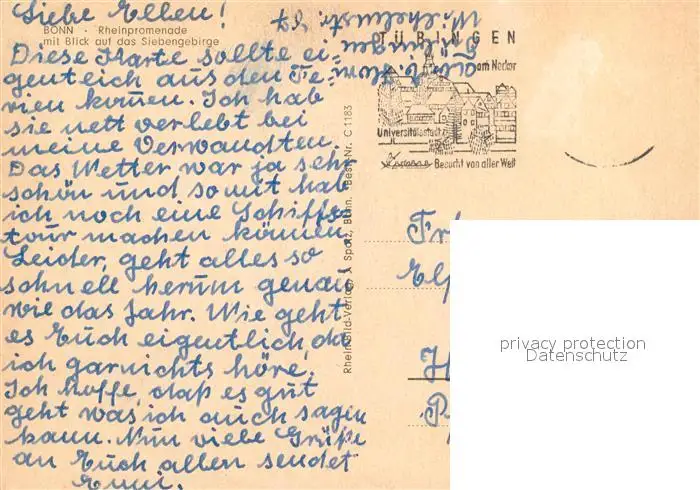 Liebe Ellen!
BONN · Rheinpromenade
mit Blick auf das Siebengebirge
Diese Karte sollte ei-
gentlich aus den Fe-
rien kommen. Ich hab
sie nett verlebt bei
meine Verwandten.
Das Wetter war ja sehr
schön und somit hab
ich noch eine Schiffs-
tour machen können
Leider, geht alles so
schnell herum genau
wie das Jahr. Wie geht
es Euch eigentlich, da
ich garnichts höre.
Ich hoffe, daß es gut
geht was ich auch sagen
kann. Nun viele Grüße
an Euch allen sendet
Emmi.
Tübingen
Wilhelmstr.
Rheinbild-Verlag J. Spatz, Bonn. Best. Nr. C 1183
TÜBINGEN
am Neckar
Universitätsstadt
Besucht von aller Welt
Fr
El
H
P
privacy protection
Datenschutz